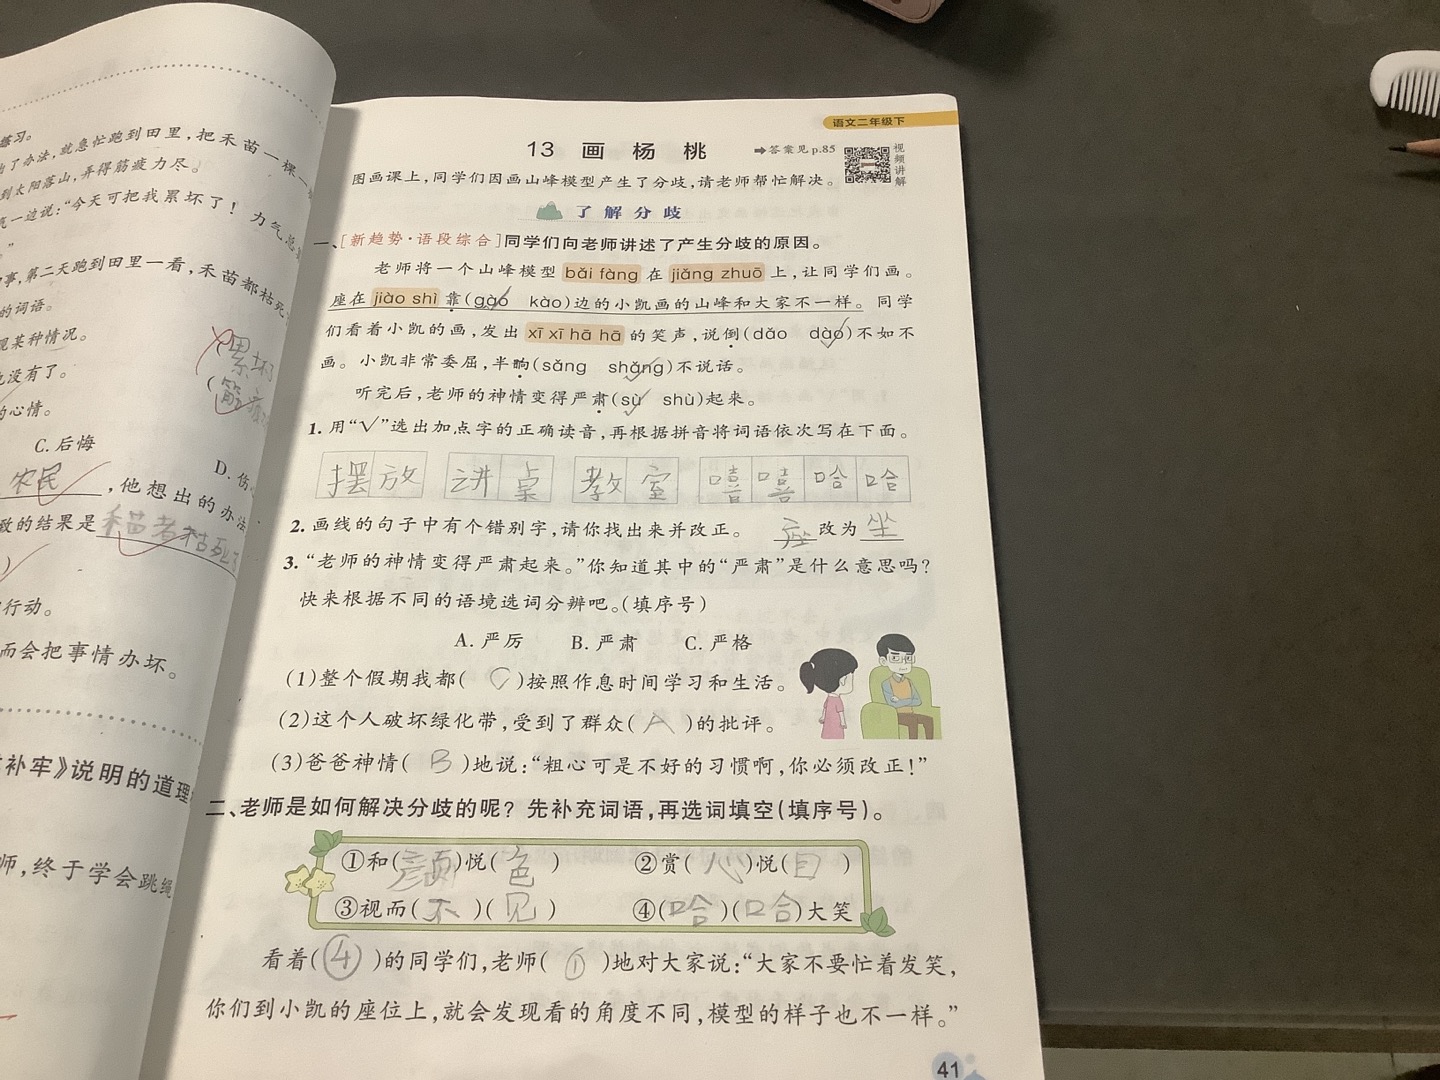 练习。
出了办法,就急忙跑到田里,把禾苗一棵一
到太阳落山,弄得筋疲力尽。
一边说:“今天可把我累坏了!力气总
事,第二天跑到田里一看,禾苗都枯死
的词语。
现某种情况。
累坏
也没有了。
筋疲
的心情。
C. 后悔
D. 伤
农民,他想出的办法
致的结果是禾苗都枯死了
行动。
而会把事情办坏。
补牢》说明的道理
师,终于学会跳绳
语文二年级下
13 画杨桃 ➡答案见p.85
视频讲解
图画课上,同学们因画山峰模型产生了分歧,请老师帮忙解决。
了解分歧
一、[新趋势·语段综合]同学们向老师讲述了产生分歧的原因。
老师将一个山峰模型 bǎi fàng 在 jiǎng zhuō 上,让同学们画。
座在 jiào shì 靠(gào kào)边的小凯画的山峰和大家不一样。同学
们看着小凯的画,发出 xī xī hā hā 的笑声,说倒(dǎo dào✓)不如不
画。小凯非常委屈,半晌(sǎng shǎng✓)不说话。
听完后,老师的神情变得严肃(sù✓ shù)起来。
1. 用“√”选出加点字的正确读音,再根据拼音将词语依次写在下面。
摆放 讲桌 教室 嘻嘻哈哈
2. 画线的句子中有个错别字,请你找出来并改正。 座改为坐
3. “老师的神情变得严肃起来。”你知道其中的“严肃”是什么意思吗?
快来根据不同的语境选词分辨吧。(填序号)
A. 严厉 B. 严肃 C. 严格
(1)整个假期我都( C )按照作息时间学习和生活。
(2)这个人破坏绿化带,受到了群众( A )的批评。
(3)爸爸神情( B )地说:“粗心可是不好的习惯啊,你必须改正!”
二、老师是如何解决分歧的呢?先补充词语,再选词填空(填序号)。
①和(颜)悦(色) ②赏(心)悦(目)
③视而(不)(见) ④(哈)(哈)大笑
看着(④)的同学们,老师(①)地对大家说:“大家不要忙着发笑,
你们到小凯的座位上,就会发现看的角度不同,模型的样子也不一样。”
41